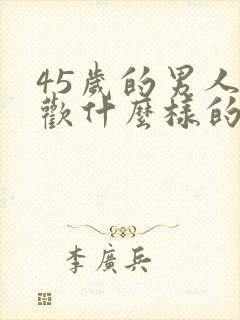 45歲的男人
歡什麼樣的
李廣兵